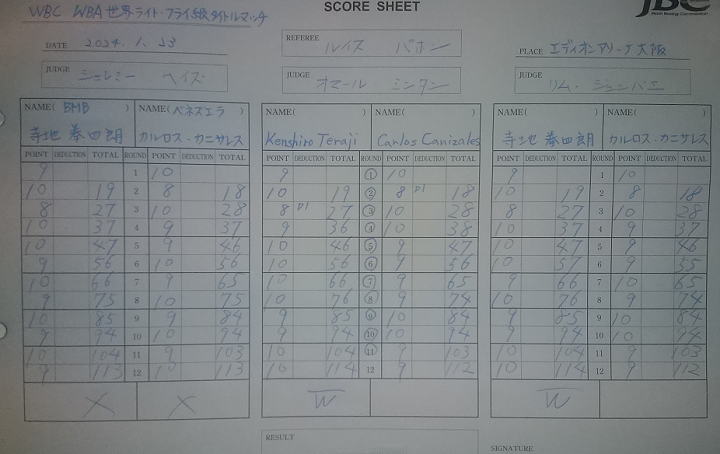 SCORE SHEET
JBC
WBC WBA世界ライト・フライ級タイトルマッチ
DATE 2024.1.23
REFEREE ルイス パボン
PLACE エディオンアリーナ大阪
JUDGE ジェレミー ヘイズ
JUDGE オマール ミンタン
JUDGE リム・ジュンバエ
NAME( BMB ) NAME( ベネズエラ ) NAME( ) NAME( ) NAME( ) NAME( )
寺地 拳四朗 カルロス・カニサレス Kenshiro Teraji Carlos Canizales 寺地 拳四朗 カルロス・カニサレス
POINT DEDUCTION TOTAL ROUND POINT DEDUCTION TOTAL POINT DEDUCTION TOTAL ROUND POINT DEDUCTION TOTAL POINT DEDUCTION TOTAL ROUND POINT DEDUCTION TOTAL
9 1 10 9 1 10 9 1 10
10 19 2 8 18 10 19 2 8 D1 18 10 19 2 8 18
8 27 3 10 28 8 D1 27 3 10 28 8 27 3 10 28
10 37 4 9 37 9 36 4 10 38 10 37 4 9 37
10 47 5 9 46 10 46 5 9 47 10 47 5 9 46
9 56 6 10 56 10 56 6 9 56 10 57 6 9 55
10 66 7 9 65 10 66 7 9 65 9 66 7 10 65
9 75 8 10 75 10 76 8 9 74 10 76 8 9 74
10 85 9 9 84 9 85 9 10 84 9 85 9 10 84
9 94 10 10 94 9 94 10 10 94 9 94 10 10 94
10 104 11 9 103 10 104 11 9 103 10 104 11 9 103
9 113 12 10 113 10 114 12 9 112 10 114 12 9 112
X X W W
RESULT
SIGNATURE